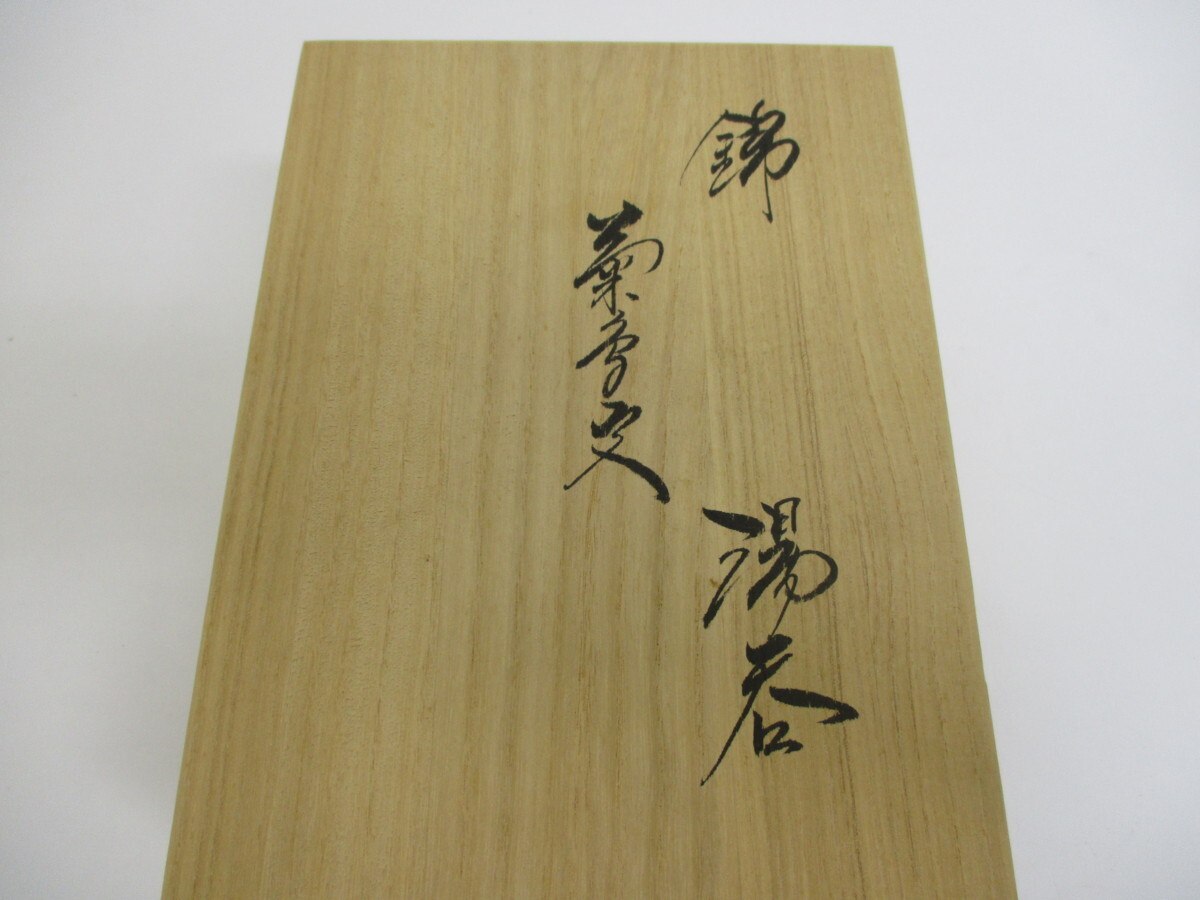 錦
菊 文
湯呑